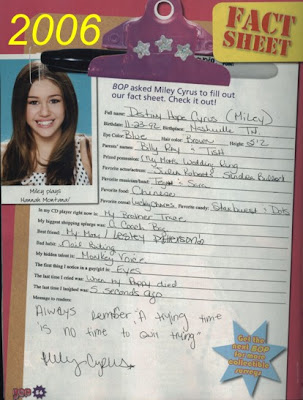 2006
FACT
SHEET
BOP asked Miley Cyrus to fill out
our fact sheet. Check it out!
Full name: Destiny Hope Cyrus (Miley)
Birthdate: 11-23-92 Birthplace: Nashville Tn.
Eye Color: Blue Hair color: Brown Height: 5'2
Parents' names: Billy Ray + Tish
Prized possession: My Moms Wedding Ring
Favorite actor/actress: Julia Roberts Sandra Bullock
Favorite musician/band: + Sara
Favorite food: Chinese
Favorite cereal: Lucky Charms Favorite candy: Starburst + Dots
In my CD player right now is: My Brother Trace
My biggest shopping splurge was: A Coach Bag
Best friend: My Mom / Lesley Patterson
Bad habit: Nail Biting
My hidden talent is: Monkey Voice
The first thing I notice in a guy/girl is: Eyes
The last time I cried was: When my Pappy died
The last time I laughed was: 5 seconds ago
Message to readers:
Always Remember "A trying time
is no time to quit trying"
Miley Cyrus
Miley plays
Hannah Montana!
Get the
next BOP
for more
collectible
BOP